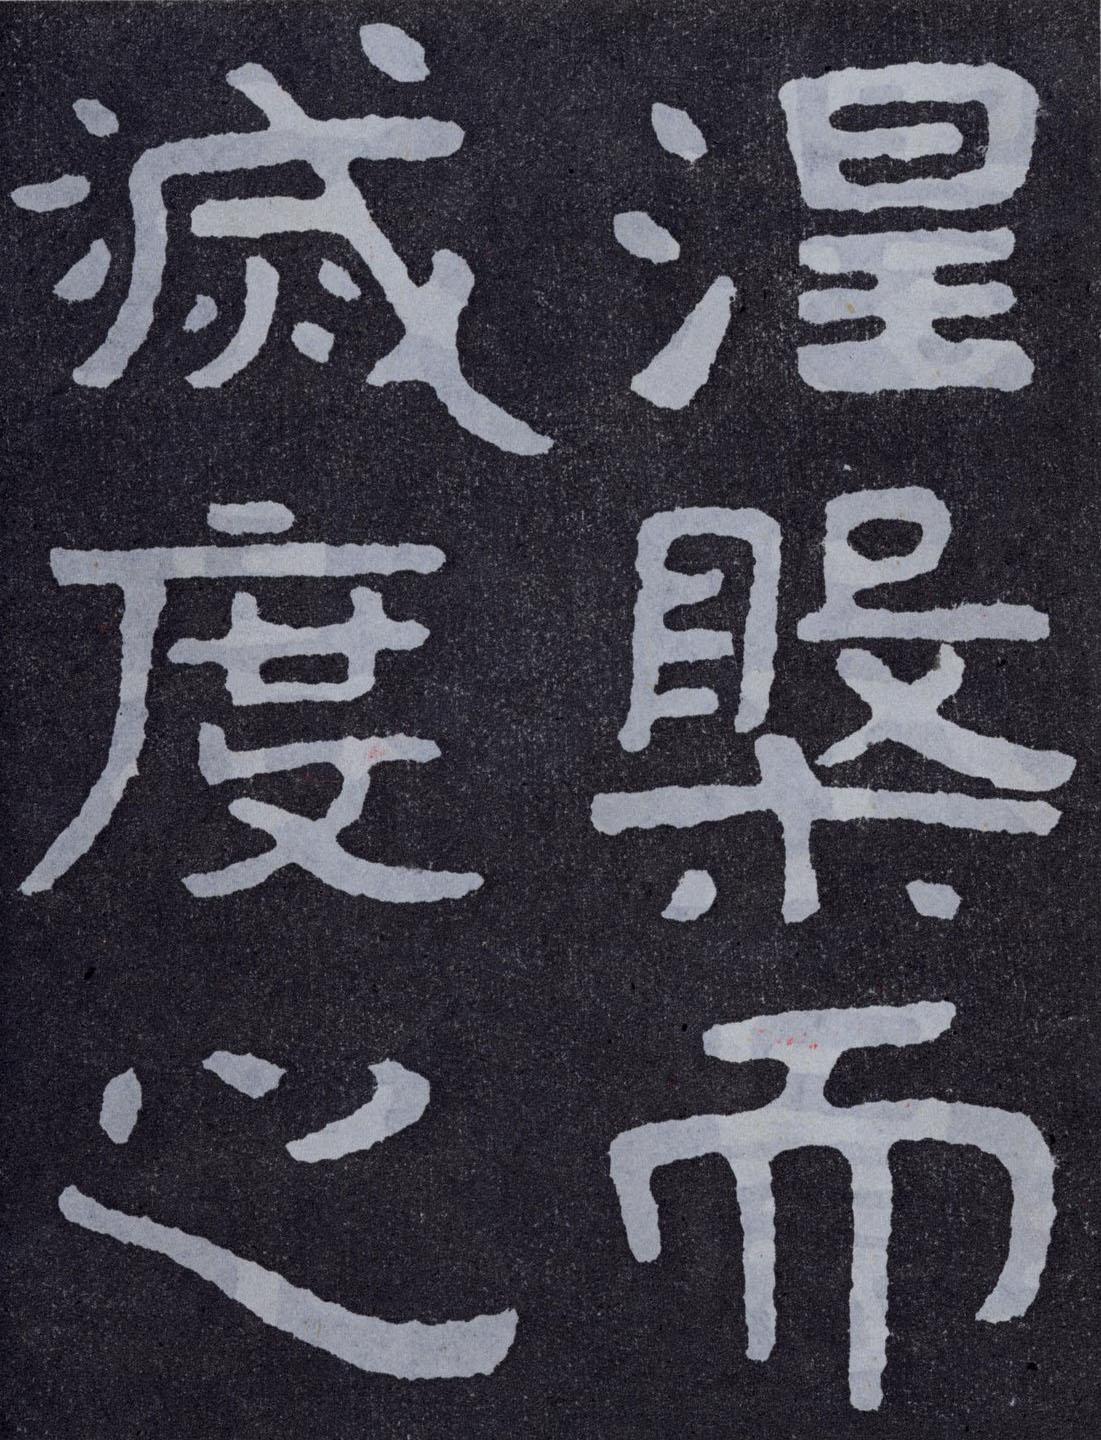 涅槃而
滅度之